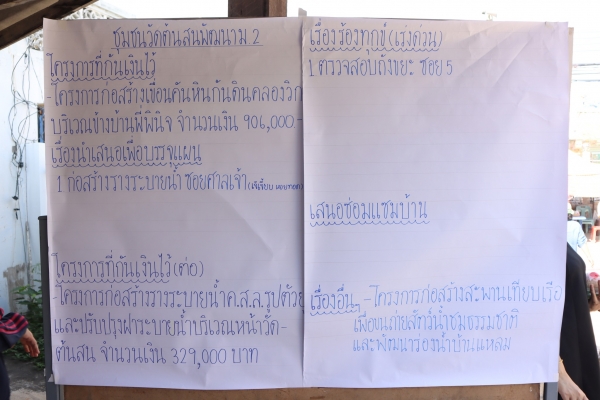 ชุมชนวัดต้นสนพัฒนาม 2
โครงการที่กันเงินไว้
-โครงการก่อสร้างเขื่อนคันหินกันดินคลองวิก
บริเวณข้างบ้านพี่พินิจ จำนวนเงิน 906,000.-
เรื่องนำเสนอเพื่อบรรจุแผน
1 ก่อสร้างรางระบายน้ำ ซอยศาลเจ้า
โครงการที่กันเงินไว้ (ต่อ)
-โครงการก่อสร้างรางระบายน้ำค.ส.ล.รูปตัวยู
และปรับปรุงฝาระบายน้ำบริเวณหน้าวัด-
ต้นสน จำนวนเงิน 329,000 บาท
เรื่องร้องทุกข์ (เร่งด่วน)
1 ตรวจสอบถังขยะ ซอย 5
เสนอซ่อมแซมบ้าน
เรื่องอื่นๆ -โครงการก่อสร้างสะพานเทียบเรือ
เพื่อขนถ่ายสัตว์น้ำชุมธรรมชาติ
และพัฒนาร่องน้ำบ้านแหลม